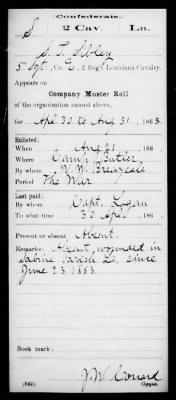 (Confederate.)
S 2 Cav. La.
S. T. Sibley
5" Sgt, Co. E, 2 Reg't Louisiana Cavalry.
Appears on
Company Muster Roll
of the organization named above,
for Apl 30 to Aug 31, 1863.
Enlisted:
When Aug 1, 186
Where Camp Butler
By whom W. W. Breazeale
Period The War
Last paid:
By whom Capt. Logan
To what time 30 Apl, 186
Present or absent Absent.
Remarks: Absent, wounded in
Sabine Parish La. since
June 23. 1863.
Book mark:
J. W. Conard
(642) Copyist.